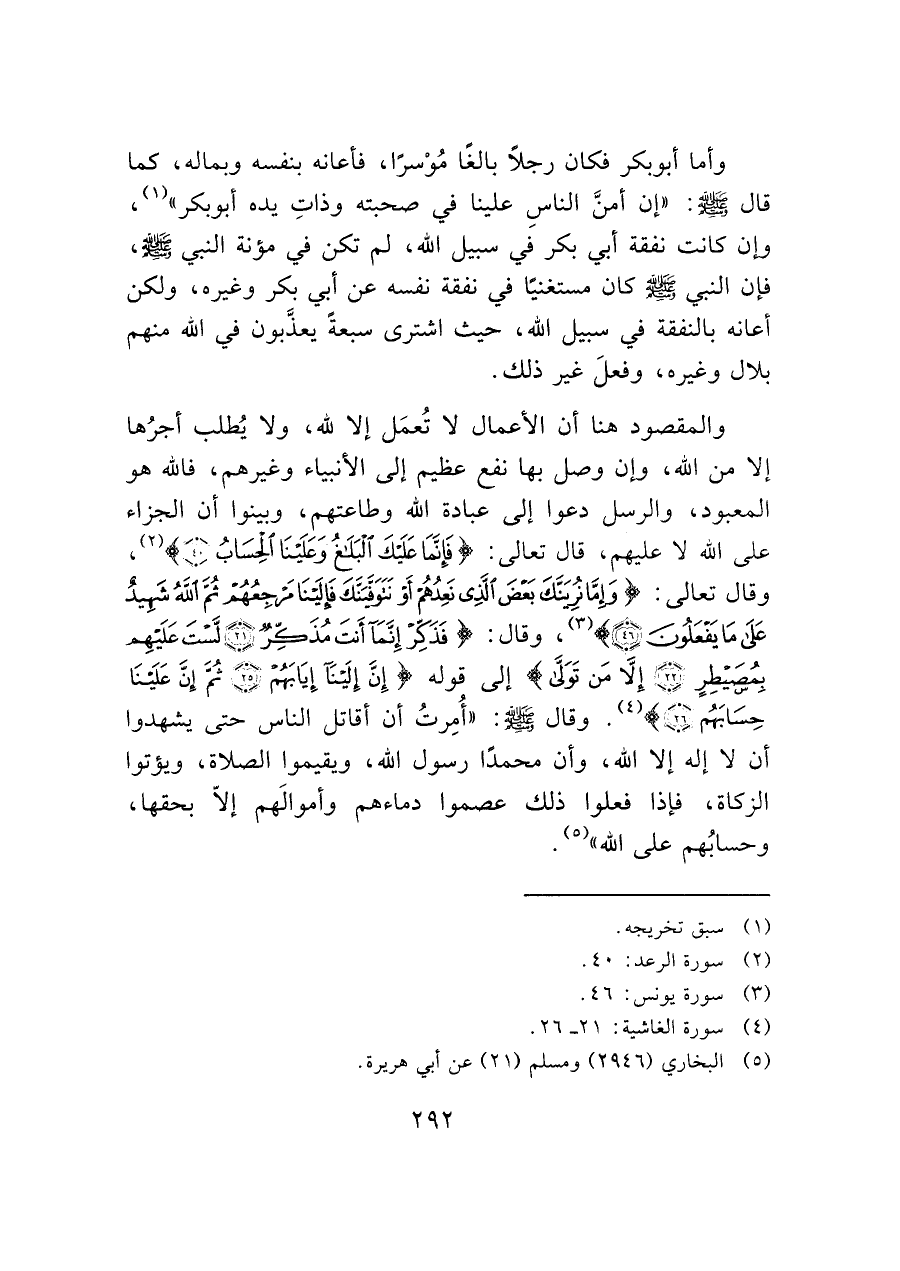 وأما أبوبكر فكان رجلاً بالغًا مُوْسرًا، فأعانه بنفسه وبماله، كما
قال ﷺ: «إن أمنَّ الناسِ علينا في صحبته وذاتِ يده أبوبكر»(١)،
وإن كانت نفقة أبي بكر في سبيل الله، لم تكن في مؤنة النبي ﷺ،
فإن النبي ﷺ كان مستغنيًا في نفقة نفسه عن أبي بكر وغيره، ولكن
أعانه بالنفقة في سبيل الله، حيث اشترى سبعةً يعذَّبون في الله منهم
بلال وغيره، وفعلَ غير ذلك.
والمقصود هنا أن الأعمال لا تُعمَل إلا لله، ولا يُطلب أجرُها
إلا من الله، وإن وصل بها نفع عظيم إلى الأنبياء وغيرهم، فالله هو
المعبود، والرسل دعوا إلى عبادة الله وطاعتهم، وبينوا أن الجزاء
على الله لا عليهم، قال تعالى: ﴿فَإِنَّمَا عَلَيْكَ ٱلْبَلَٰغُ وَعَلَيْنَا ٱلْحِسَابُ ٤٠﴾(٢)،
وقال تعالى: ﴿وَإِمَّا نُرِيَنَّكَ بَعْضَ ٱلَّذِى نَعِدُهُمْ أَوْ نَتَوَفَّيَنَّكَ فَإِلَيْنَا مَرْجِعُهُمْ ثُمَّ ٱللَّهُ شَهِيدٌ
عَلَىٰ مَا يَفْعَلُونَ ٤٦﴾(٣)، وقال: ﴿فَذَكِّرْ إِنَّمَآ أَنتَ مُذَكِّرٌ ٢١ لَّسْتَ عَلَيْهِم
بِمُصَيْطِرٍ ٢٢ إِلَّا مَن تَوَلَّىٰ﴾ إلى قوله ﴿إِنَّ إِلَيْنَآ إِيَابَهُمْ ٢٥ ثُمَّ إِنَّ عَلَيْنَا
حِسَابَهُم ٢٦﴾(٤). وقال ﷺ: «أُمِرتُ أن أقاتل الناس حتى يشهدوا
أن لا إله إلا الله، وأن محمدًا رسول الله، ويقيموا الصلاة، ويؤتوا
الزكاة، فإذا فعلوا ذلك عصموا دماءهم وأموالَهم إلاّ بحقها،
وحسابُهم على الله»(٥).
(١) سبق تخريجه.
(٢) سورة الرعد: ٤٠.
(٣) سورة يونس: ٤٦.
(٤) سورة الغاشية: ٢١ـ ٢٦.
(٥) البخاري (٢٩٤٦) ومسلم (٢١) عن أبي هريرة.
٢٩٢